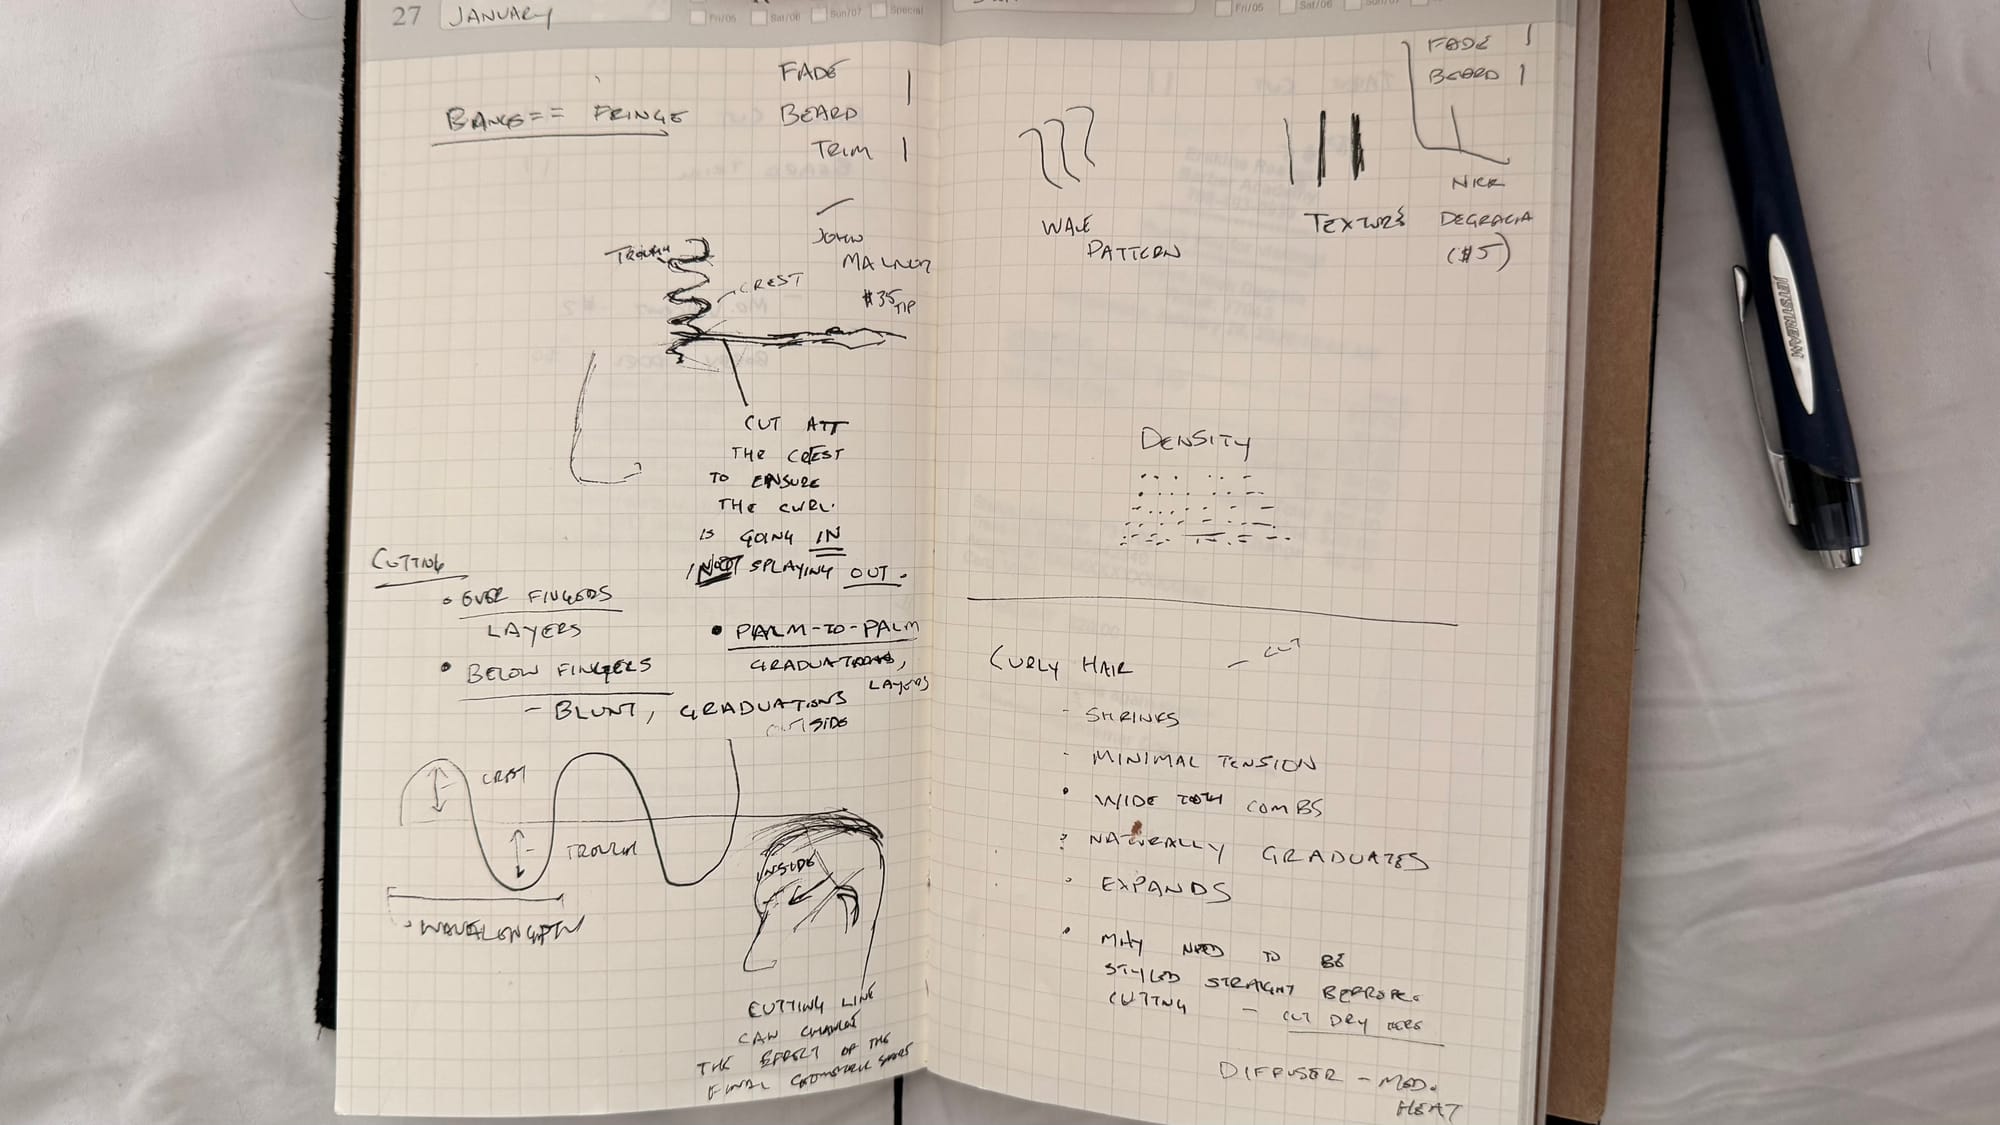 27 JANUARY
Fri/05 Sat/06 Sun/07 Special
BANGS == FRINGE
FADE |
BEARD
TRIM |
JOHN
$35 TIP
TROUGH
CREST
CUT ATT
THE CREST
TO ENSURE
THE CURL
IS GOING IN
NOT SPLAYING OUT.
CUTTING
• OVER FINGERS
LAYERS
• BELOW FINGERS
- BLUNT, GRADUATIONS
OUTSIDE
• PALM-TO-PALM
GRADUATIONS,
LAYERS
CREST
TROUGH
WAVELENGTH
INSIDE
CUTTING LINE
CAN CHANGE
THE EFFECT OF THE
FINAL
Fri/05 Sat/06 Sun/07
FADE 1
BEARD 1
NICK
DEGRACIA
($5)
WAVE
PATTERN
TEXTURE
DENSITY
CURLY HAIR - CUT
- SHRINKS
- MINIMAL TENSION
• WIDE TOOTH COMBS
NATURALLY GRADUATES
• EXPANDS
• MAY NEED TO BE
STYLED STRAIGHT BEFRORE
CUTTING - CUT DRY HERE
DIFFUSER - MED.
HEAT
JETSTREAM